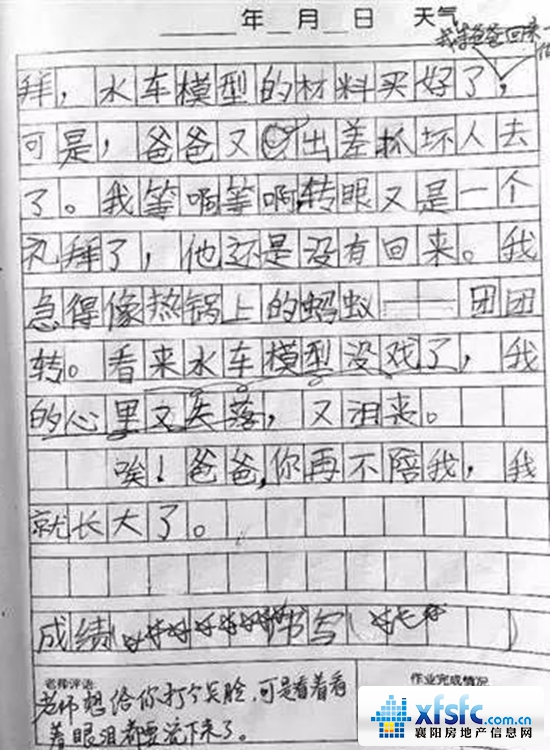 年 月 日 天气
我等爸爸回来一
拜，水车模型的材料买好了，
可是，爸爸又出差抓坏人去
了。我等啊等啊，转眼又是一个
礼拜了，他还是没有回来。我
急得像热锅上的蚂蚁——团团
转。看来水车模型没戏了，我
的心里又失落，又沮丧。
唉！爸爸，你再不陪我，我
就长大了。
成绩( 书写( )
老师评语 作业完成情况
老师想给你打个笑脸，可是看着看
着眼泪都要流下来了。
xfsfc.com
襄阳房地产信息网